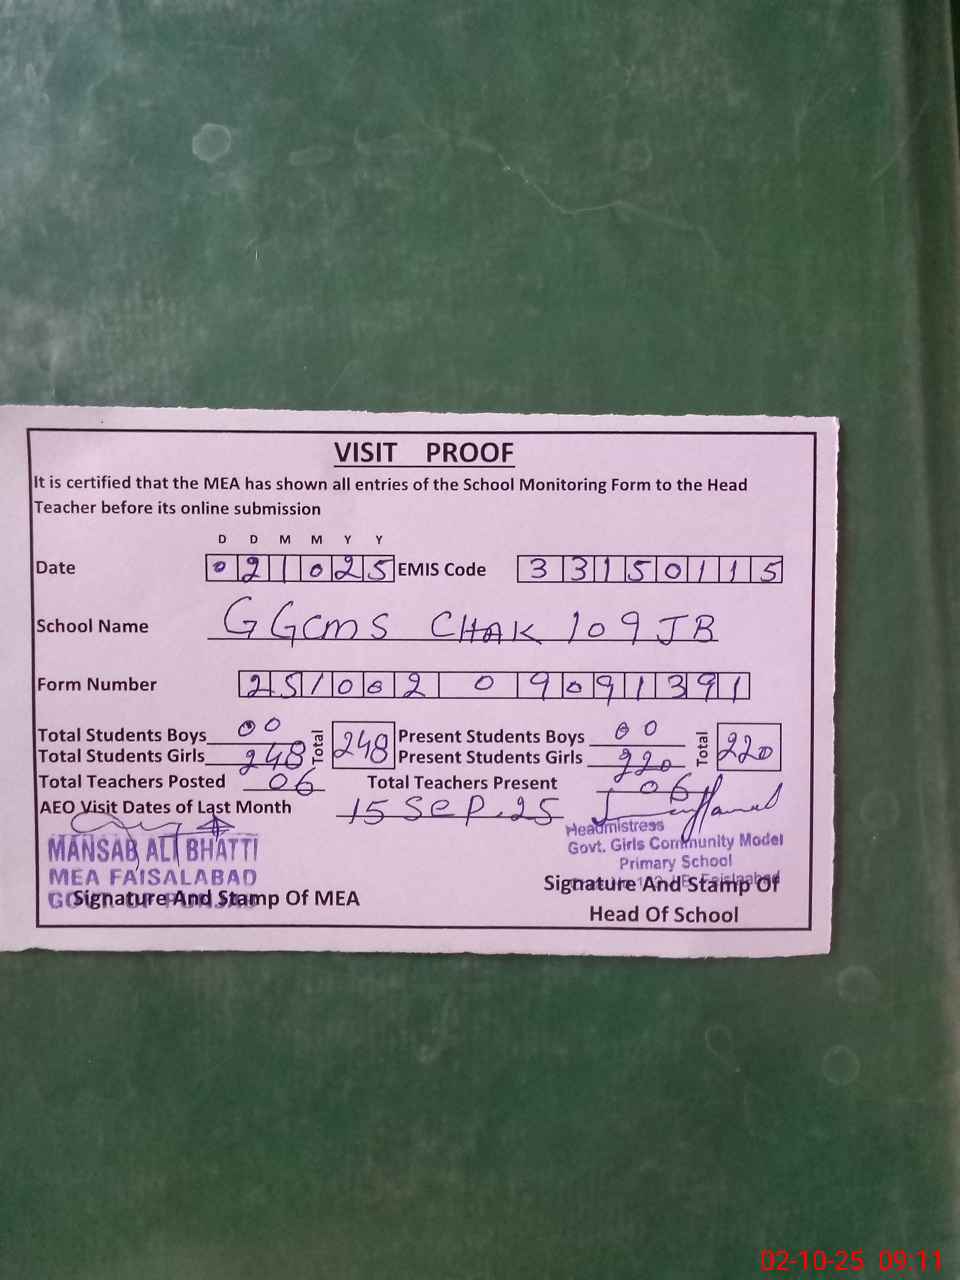 VISIT PROOF
It is certified that the MEA has shown all entries of the School Monitoring Form to the Head
Teacher before its online submission
D D M M Y Y
Date 021025 EMIS Code 33150115
School Name GGCMS CHAK 109 JB
Form Number 251002 09091391
Total Students Boys 00 Total 248 Present Students Boys 00 Total 220
Total Students Girls 248 Present Students Girls 220
Total Teachers Posted 06 Total Teachers Present 06
AEO Visit Dates of Last Month 15 Sep. 25
MANSAB ALI BHATTI
MEA FAISALABAD
Signature And Stamp Of MEA
Headmistress
Govt. Girls Community Model
Primary School
Signature And Stamp Of
Head Of School
02-10-25 09:11